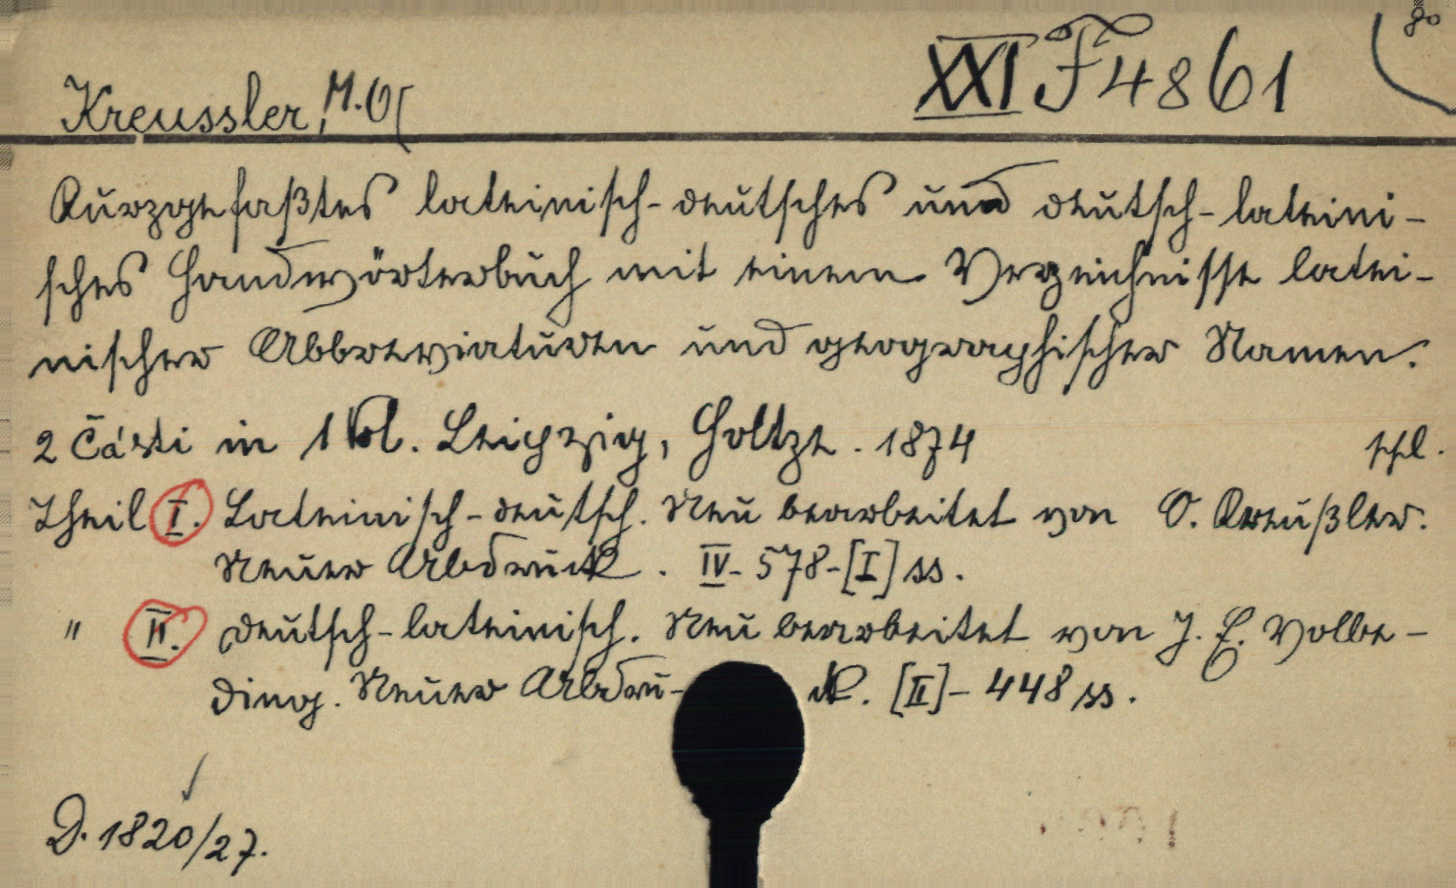 XXI F 4861
8°
Kreussler, M. O(
Kurzgefaßtes lateinisch-deutsches und deutsch-lateini-
sches Handwörterbuch mit einem Verzeichnisse latei-
nischer Abbreviaturen und geographischer Namen.
2 Části in 1 Vol. Leipzig, Holtze. 1874
ppl.
Theil I. Lateinisch-deutsch. Neu bearbeitet von O. Kreußler.
Neuer Abdruck. IV-578-[I] ss.
" II. Deutsch-lateinisch. Neu bearbeitet von J. E. Volbe-
ding. Neuer Abdru-ck. [II]-448 ss.
D. 1820/27.